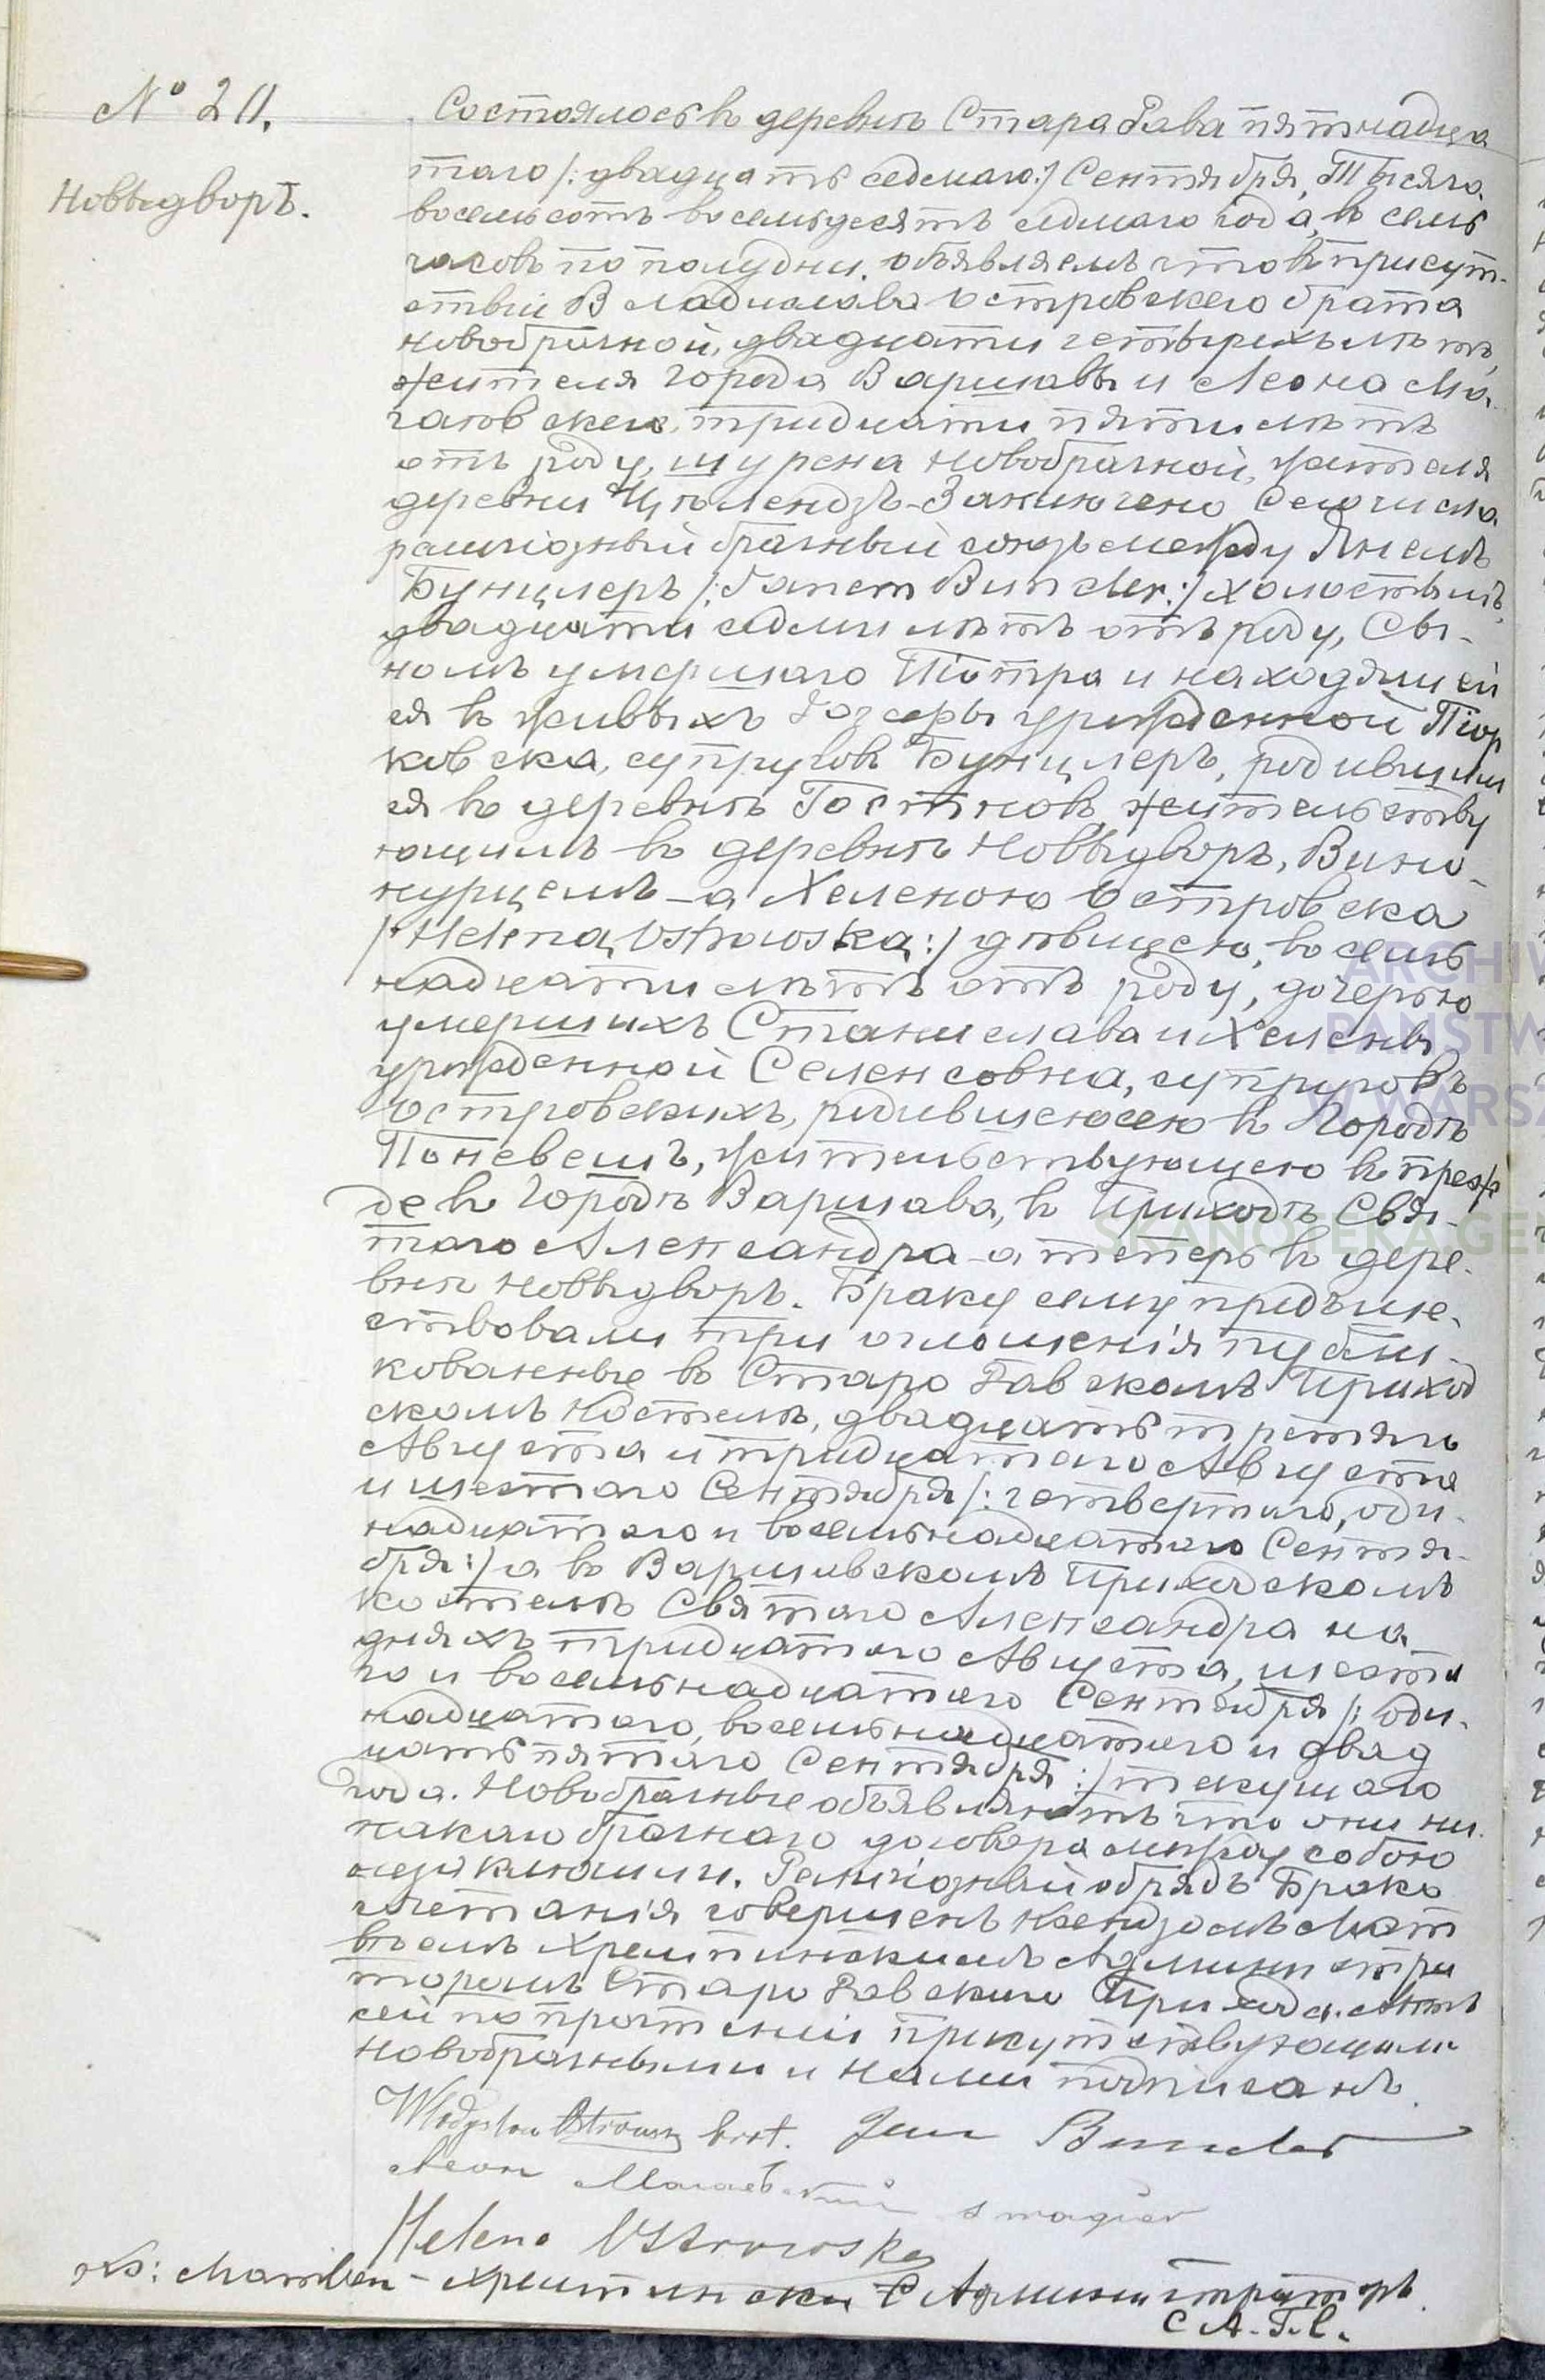 № 20.
Новыдворъ.
Состоялось въ деревнѣ Стара Рава пятнадца
таго /: двадцать седмаго :/ Сентября, Тысяча
восемьсотъ восемьдесятъ седмаго года, въ семь
часовъ по полудни. объявляемъ что въ присут-
ствіи Владислава Островскего брата
новобрачной, двадцати четырехъ лѣтъ
жителя города Варшавы и Леона
тридцати пяти лѣтъ
отъ роду, шурена новобрачной, жителя
деревни Заключено сего числа
религіозный брачный союзъ между Янемъ
Бунцлеръ /: Janem Buncler :/ холостымъ,
двадцати седми лѣтъ отъ роду, Сы-
номъ умершаго Піотра и находящей
ся въ живыхъ Іозефы урожденной Піор
ковска, супруговъ Бунцлеръ, родившим
ся въ деревнѣ Гостиновъ, жительству
ющимъ въ деревнѣ Новыдворъ, Вино-
курцемъ - а Хеленою Островска
/: Helena Ostrowska :/ дѣвицею, восемь
надцати лѣтъ отъ роду, дочерью
умершихъ Станислава и Хелены
урожденной Селенсовна, супруговъ
Островскихъ, родившеюсею въ Городѣ
Поневешъ, жительствующею въ преж
де въ Городѣ Варшава, въ Приходѣ Свя-
таго Александра а теперь въ дере-
внѣ Новыдворъ. Браку сему предше-
ствовали три оглошенія публи-
кованные въ Старо Равскомъ Приход
скомъ Костелѣ, двадцать третяго
Августа и тридцатаго Августа
и шестаго Сентября /: четвертаго, оди-
надцатаго и восемьнадцатаго Сентя-
бря :/ а въ Варшавскомъ Приходскомъ
костелѣ Святаго Александра на
дняхъ тридцатаго Августа, шеста
го и восемьнадцатаго Сентября /: оди-
надцатаго, восемьнадцатаго и двад
цать пятаго Сентября :/ текущаго
года. Новобрачные объявляютъ что они ни-
какаго брачнаго договора между собою
незаключили. Религіозный обрядъ Брако
сочетанія совершенъ Ксендзомъ Мат
вѣемъ Администра
торомъ Старо Равскаго Прихода. Актъ
сей по прочтеніи присутствующими
новобрачными и нами подписанъ.
Władysław Ostrowski brat. Jan Buncler
Леон szwagier
Helena Ostrowska
Кс: Администраторъ
С. А. Г. С.